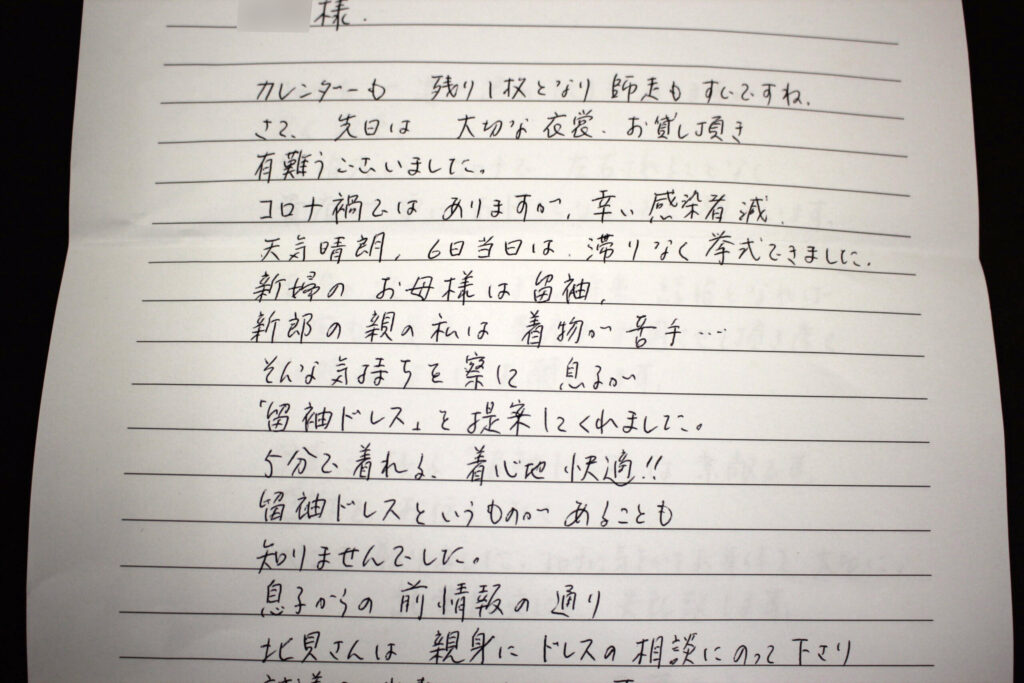 様.
カレンダーも 残り1枚となり 師走も すぐですね.
さて、先日は 大切な衣裳、お貸し頂き
有難うございました。
コロナ禍では ありますが、幸い 感染者減、
天気晴朗, 6日当日は、滞りなく 挙式できました.
新婦の お母様は 留袖,
新郎の親の私は 着物が 苦手…
そんな気持ちを 察して 息子が
「留袖ドレス」を 提案してくれました。
5分で着れる、着心地 快適!!
留袖ドレスというものが あることも
知りませんでした。
息子からの 前情報の 通り
北貝さんは 親身に ドレスの 相談にのって 下さり